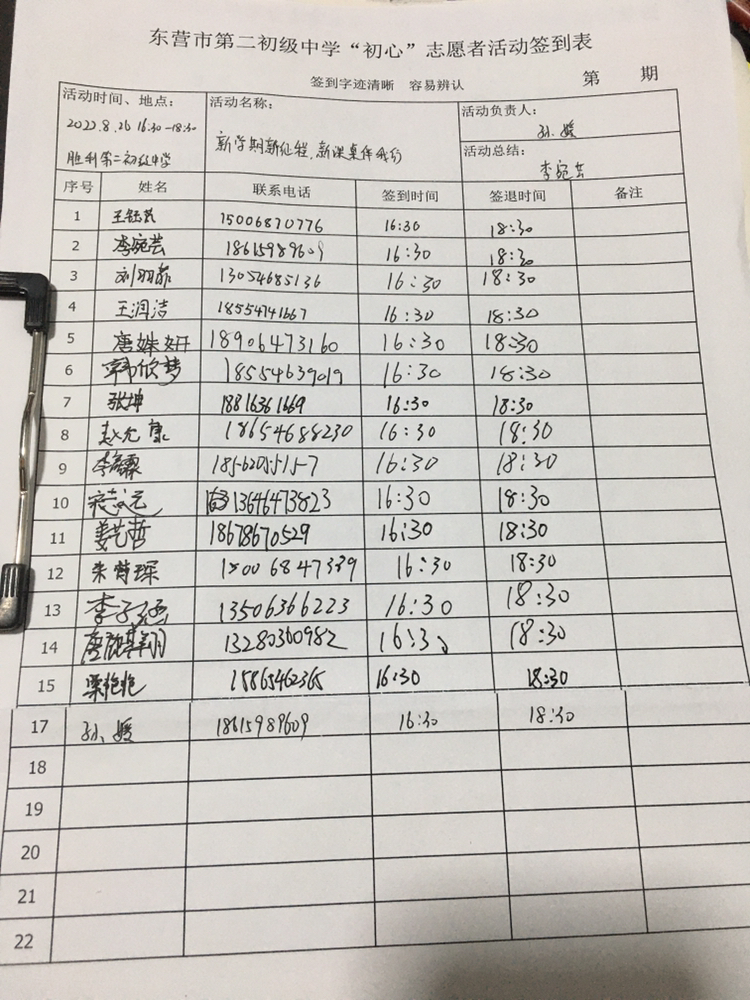 东营市第二初级中学“初心”志愿者活动签到表
签到字迹清晰 容易辨认 第 期
活动时间、地点： 活动名称： 活动负责人：
2022.8.26 16:30-18:30 孙媛
胜利第二初级中学 新学期新征程,新课桌伴我行 活动总结：
李宛芸
序号 姓名 联系电话 签到时间 签退时间 备注
1 15006870776 16:30 18:30
2 李婉芸 18615989609 16:30 18:30
3 刘羽菲 13054685136 16:30 18:30
4 王润洁 18554741667 16:30 18:30
5 唐姝妍 18906473160 16:30 18:30
6 韩欣梦 18554639019 16:30 18:30
7 张坤 18816361669 16:30 18:30
8 赵尤康 18654688230 16:30 18:30
9 18562055157 16:30 18:30
10 13646473823 16:30 18:30
11 姜艺哲 18678670529 16:30 18:30
12 15006847339 16:30 18:30
13 李子涵 13506366223 16:30 18:30
14 13280360982 16:30 18:30
15 栗艳艳 15865462365 16:30 18:30
17 孙媛 18615989609 16:30 18:30
18
19
20
21
22